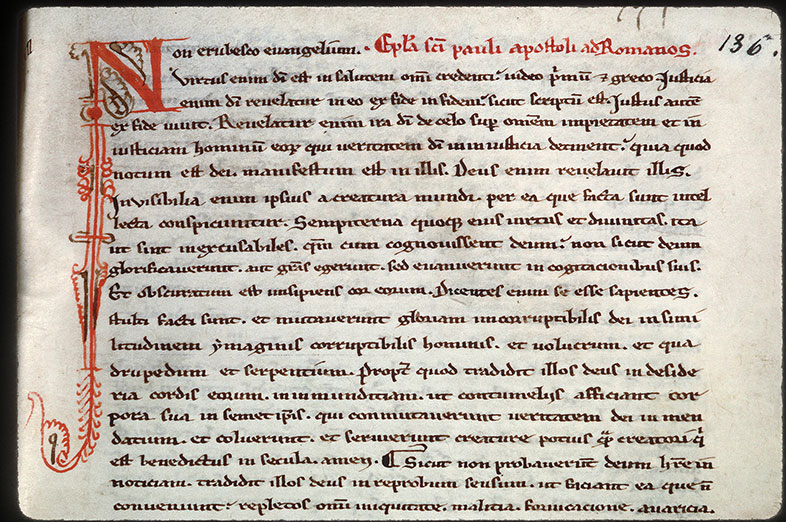 Non erubesco evangelium. Epła sci pauli apostoli ad Romanos. 136.
Virtus enim dī est in salutem omī credenti. iudeo p̄mū & greco Iusticia
enim dī revelatur in eo ex fide in fidem. sicut scriptū est. Iustus autē
ex fide vivit. Revelatur enim ira dī de celo sup omēm impietatem et in
iusticiam hominū eoꝝ qui veritatem dī in iniusticia detinent. quia quod
notum est dei. manifestum est in illis. Deus enim revelavit illis.
Invisibilia enim ipsius a creatura mundi. per ea que facta sunt intel
lecta conspiciuntur. Sempiterna quoqꝫ eius virtus et divinitas. ita
ut sint inexcusabiles. qm̄ cum cognovissent deum. non sicut deum
glorificaverunt. aut grās egerunt. sed evanuerunt in cogitacionibus suis.
Et obscuratum est insipiens cor eorum. Dicentes enim se esse sapientes.
stulti facti sunt. et mutaverunt gloriam incorruptibilis dei in simi
litudinem ẏmaginis corruptibilis hominis. et volucrum. et qua
drupedum et serpentium. Propt̄ quod tradidit illos deus in deside
ria cordis eorum. in inmunditiam. ut contumelijs afficiant cor
pora sua in semet ip̄is. qui conmutaverunt veritatem dei in men
datium. et coluerunt. et servierunt creature potius q̄ creatori q̄
est benedictus in secula. amen. Sicut non probaverūt deum hr̄e in
noticiam. tradidit illos deus in reprobum sensum. ut faciant ea que n̄
conveniunt. repletos omī iniquitate. malitia. fornicacione. avaricia.